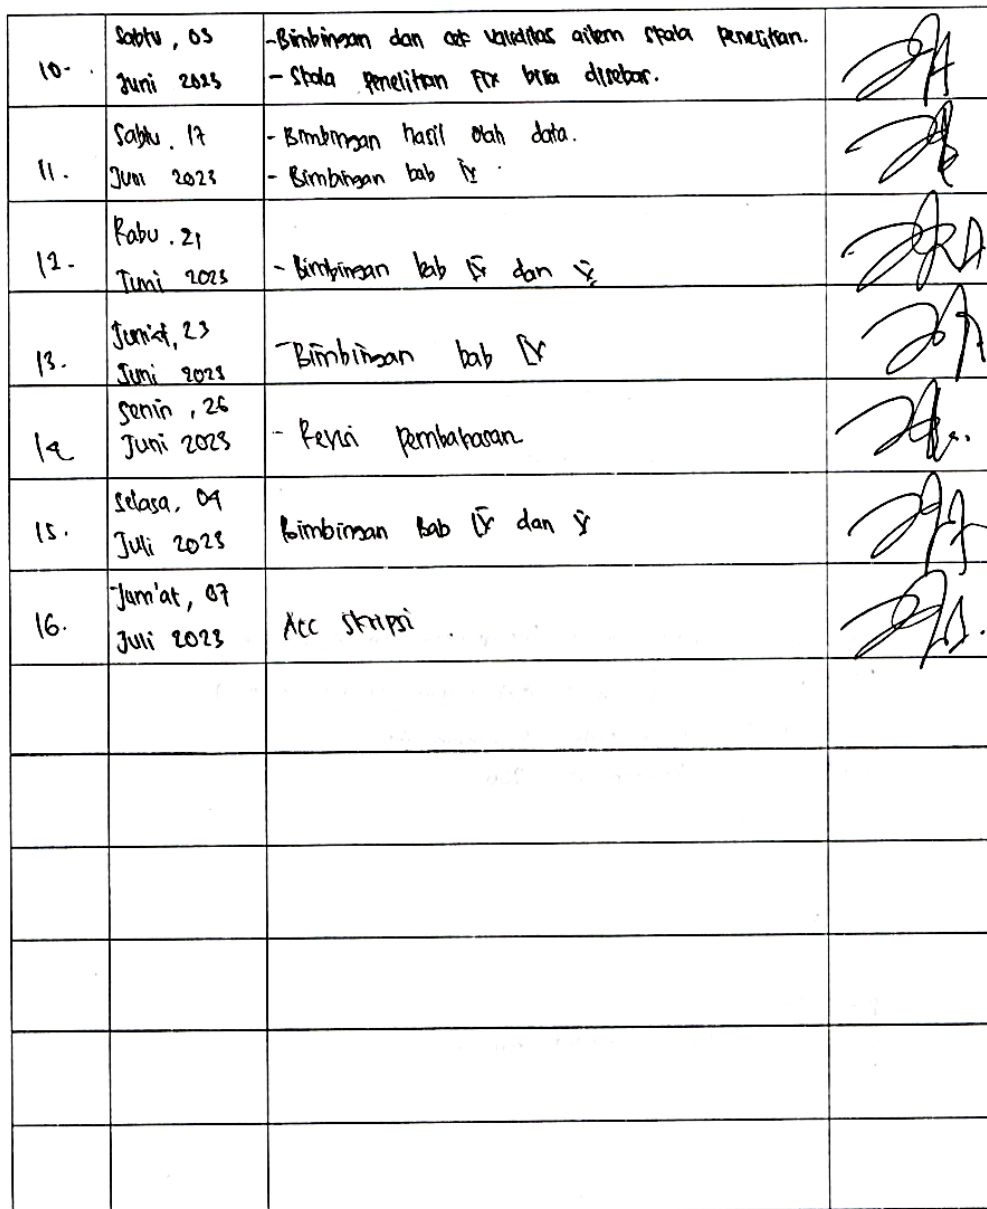 10.
Sabtu, 03
Juni 2023
-Bimbingan dan cek validitas aitem skala penelitian.
- Skala penelitian fix bisa disebar.
11.
Sabtu. 17
Juni 2023
- Bimbingan hasil olah data.
- Bimbingan bab IV
12.
Rabu. 21
Juni 2023
- Bimbingan bab IV dan V
13.
Jum'at, 23
Juni 2023
-Bimbingan bab IV
14
Senin, 26
Juni 2023
- Revisi pembahasan
15.
Selasa, 04
Juli 2023
Bimbingan Bab IV dan V
16.
Jum'at, 07
Juli 2023
Acc skripsi.